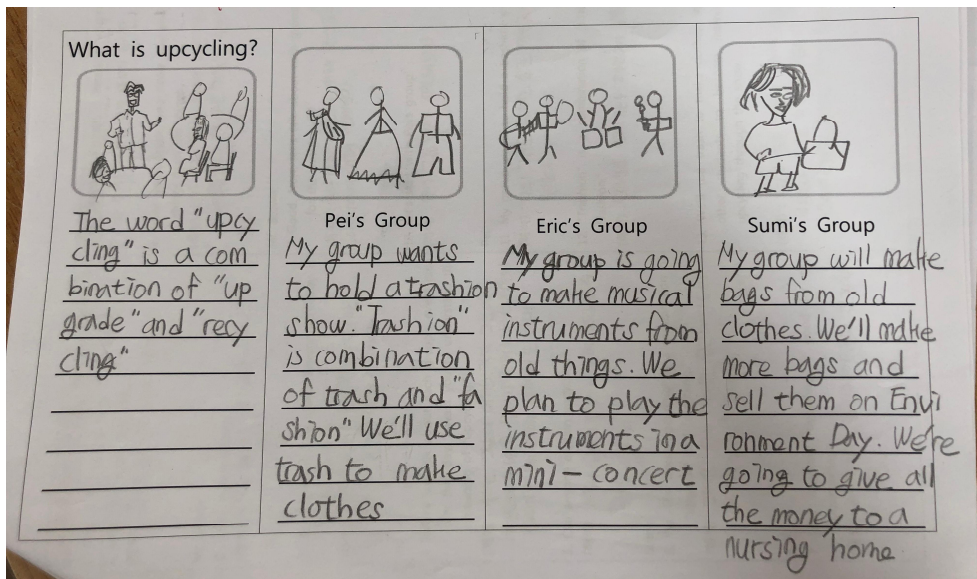 What is upcycling?
The word "upcy
cling" is a com
bination of "up
grade" and "recy
cling"
Pei's Group
My group wants
to hold a trashion
show. "Trashion"
is combination
of trash and "fa
shion" We'll use
trash to make
clothes
Eric's Group
My group is going
to make musical
instruments from
old things. We
plan to play the
instruments in a
mini-concert
Sumi's Group
My group will make
bags from old
clothes. We'll make
more bags and
sell them on Envi
ronment Day. We're
going to give all
the money to a
nursing home